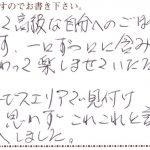 すのでお書き下さい。
2高級な自分へのごほ
す。一口ずつ口に含み
わって楽しませていただ
ービスエリアで見付け
思わずこれこれと言
くしました。